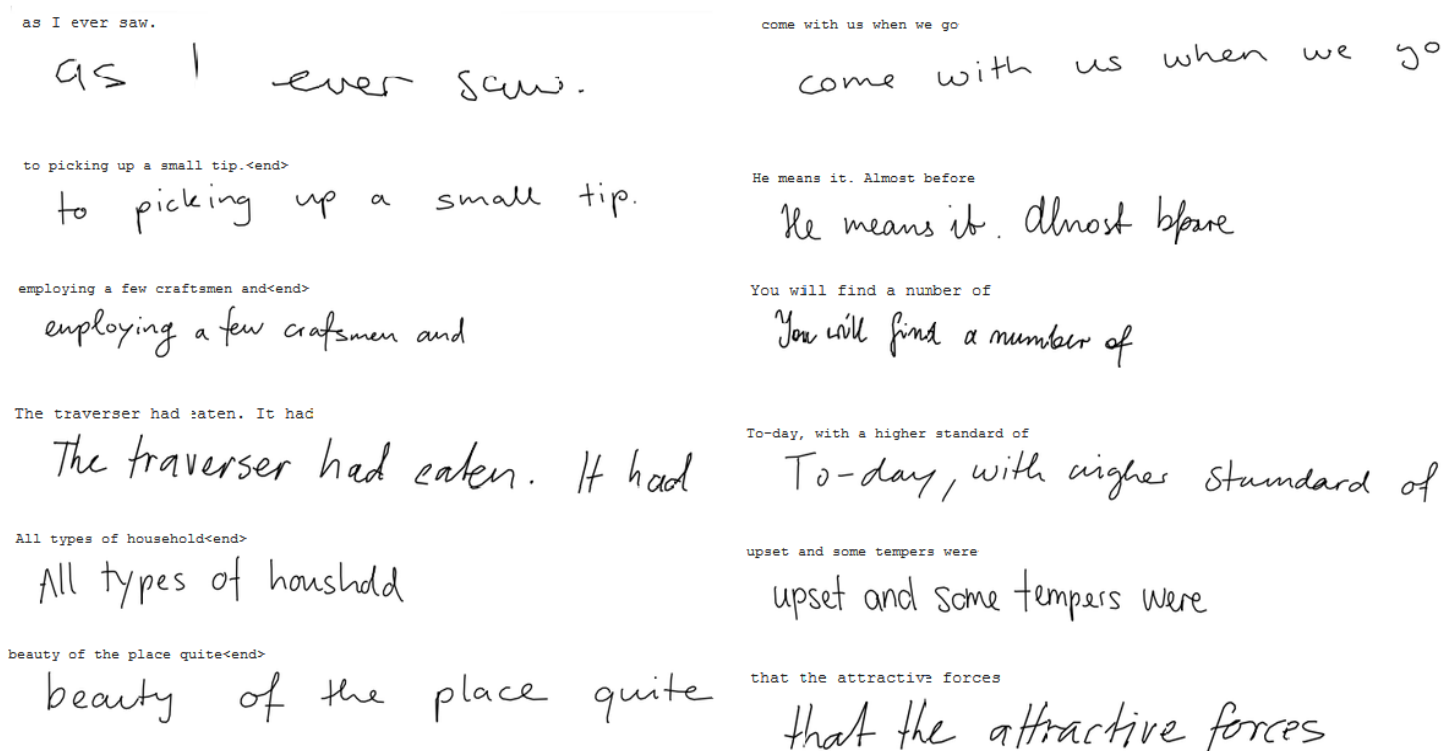 as I ever saw.
as I ever saw.
to picking up a small tip.<end>
to picking up a small tip.
employing a few craftsmen and<end>
employing a few crafsmen and
The traverser had eaten. It had
The traverser had eaten. It had
All types of household<end>
All types of houshold
beauty of the place quite<end>
beauty of the place quite
come with us when we go
come with us when we go
He means it. Almost before
He means it. Almost bfore
You will find a number of
You will find a number of
To-day, with a higher standard of
To-day, with aigher stamdard of
upset and some tempers were
upset and some tempers were
that the attractive forces
that the attractive forces